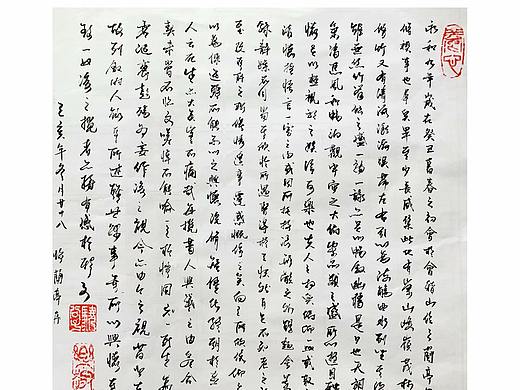 永和九年歲在癸丑暮春之初會於會稽山陰之蘭亭
修禊事也群賢畢至少長咸集此地有崇山峻嶺茂林
修竹又有清流激湍映帶左右引以為流觴曲水列坐其
雖無絲竹管弦之盛一觴一詠亦足以暢敘幽情是日也天朗
氣清惠風和暢仰觀宇宙之大俯察品類之盛所以遊目騁
懷足以極視聽之娛信可樂也夫人之相與俯仰一世或取
諸懷抱悟言一室之內或因寄所託放浪形骸之外雖趣舍萬
殊靜躁不同當其欣於所遇暫得於己快然自足不知老
至及其所之既倦情隨事遷感慨係之矣向之所欣俯仰
以為陳迹猶不能不以之興懷況修短隨化終期於盡
人云死生亦大矣豈不痛哉每攬昔人興感之由若合
契未嘗不臨文嗟悼不能喻之於懷固知一死生為
虛誕齊彭殤為妄作後之視今亦由今之視昔
故列敘時人錄其所述雖世殊事異所以興懷其
致一也後之攬者亦有感於斯文
己亥年冬月廿八 臨蘭亭序